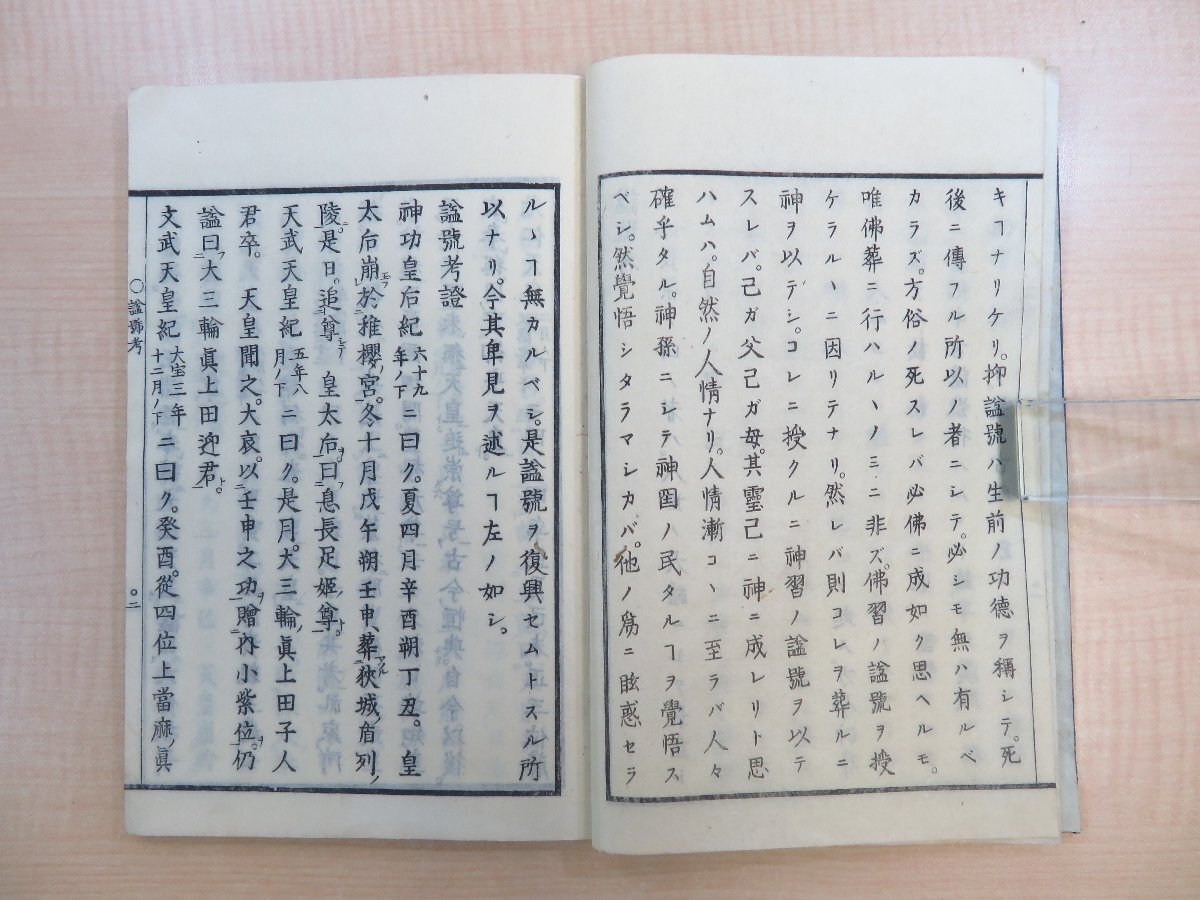 キヿナリケリ。抑諡號ハ生前ノ功德ヲ稱シテ。死
後ニ傳フル所以ノ者ニシテ。必シモ無ハ有ルベ
カラズ。方俗ノ死スレバ必佛ニ成如ク思ヘルモ。
唯佛葬ニ行ハルヽノミニ非ズ。佛習ノ諡號ヲ授
ケラルヽニ因リテナリ。然レバ則コレヲ葬ルニ
神ヲ以テシ。コレニ授クルニ神習ノ諡號ヲ以テ
スレバ。己ガ父己ガ母。其靈己ニ神ニ成レリト思
ハムハ。自然ノ人情ナリ。人情漸コヽニ至ラバ人々
確乎タル。神孫ニシテ神國ノ民タルヿヲ覺悟ス
ベシ。然覺悟シタラマシカバ。他ノ爲ニ眩惑セラ
ルヽヿ無カルベシ。是諡號ヲ復興セムトスル所
以ナリ。今其卑見ヲ述ルヿ左ノ如シ。
諡號考證
神功皇后紀六十九年ノ下ニ曰ク。夏四月辛酉朔丁丑。皇
太后崩於稚櫻宮。冬十月戊午朔壬申、葬狹城盾列
陵。是日。追尊皇太后曰息長足姬尊。
天武天皇紀五年八月ノ下ニ曰ク。是月。大三輪眞上田子人
君卒。天皇聞之。大哀。以壬申之功贈內小紫位。仍
諡曰大三輪眞上田迎君。
文武天皇紀大宝三年十二月ノ下ニ曰ク。癸酉。從四位上當麻眞
〇諡號考
〇二